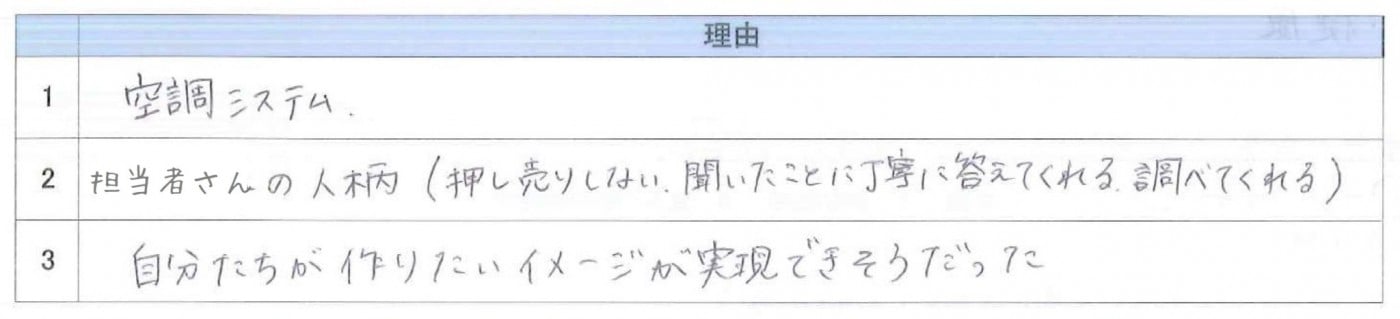 理由
1 空調システム.
2 担当者さんの人柄(押し売りしない.聞いたことに丁寧に答えてくれる.調べてくれる)
3 自分たちが作りたいイメージが実現できそうだった